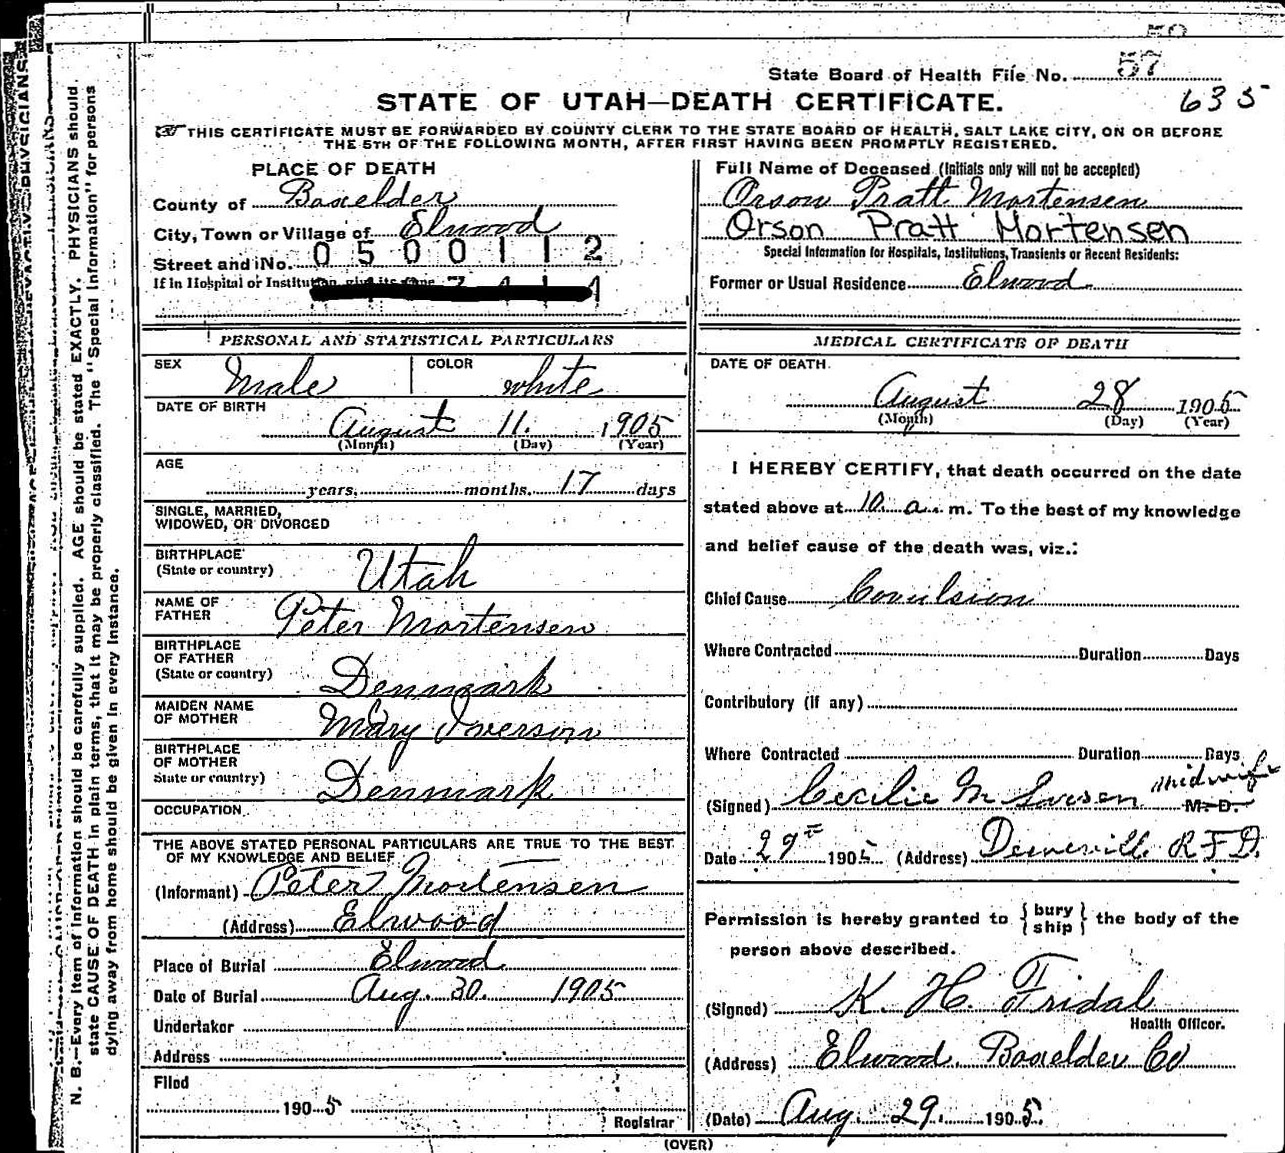 57
State Board of Health File No.
STATE OF UTAH—DEATH CERTIFICATE.
635
THIS CERTIFICATE MUST BE FORWARDED BY COUNTY CLERK TO THE STATE BOARD OF HEALTH, SALT LAKE CITY, ON OR BEFORE
THE 5TH OF THE FOLLOWING MONTH, AFTER FIRST HAVING BEEN PROMPTLY REGISTERED.
PLACE OF DEATH
County of Boxelder
City, Town or Village of Elwood
0500112
Street and No.
If in Hospital or Institution, give its
PERSONAL AND STATISTICAL PARTICULARS
SEX Male COLOR white
DATE OF BIRTH
August 11. 1905
(Month) (Day) (Year)
AGE
years, months, 17 days
SINGLE, MARRIED,
WIDOWED, OR DIVORCED
BIRTHPLACE
(State or country) Utah
NAME OF
FATHER Peter Mortensen
BIRTHPLACE
OF FATHER
(State or country) Denmark
MAIDEN NAME
OF MOTHER Mary Iverson
BIRTHPLACE
OF MOTHER
State or country) Denmark
OCCUPATION
THE ABOVE STATED PERSONAL PARTICULARS ARE TRUE TO THE BEST
OF MY KNOWLEDGE AND BELIEF
(Informant) Peter Mortensen
(Address) Elwood
Place of Burial Elwood
Date of Burial Aug. 30. 1905
Undertaker
Address
Filed
1905
Registrar
Full Name of Deceased (Initials only will not be accepted)
Orson Pratt Mortensen
Orson Pratt Mortensen
Special Information for Hospitals, Institutions, Transients or Recent Residents:
Former or Usual Residence Elwood
MEDICAL CERTIFICATE OF DEATH
DATE OF DEATH
August 28 1905
(Month) (Day) (Year)
I HEREBY CERTIFY, that death occurred on the date
stated above at 10. a. m. To the best of my knowledge
and belief cause of the death was, viz.:
Chief Cause Covulsion
Where Contracted Duration Days
Contributory (if any)
Where Contracted Duration Days
midwife
(Signed) Cecilie M Iversen M. D.
Date 29th 1905 (Address) R.F.D.
Permission is hereby granted to {bury
ship} the body of the
person above described.
(Signed) K. H. Fridal
Health Officer.
(Address) Elwood. Boxelder Co
(Date) Aug. 29. 1905.
(OVER)
N. B.—Every item of information should be carefully supplied. AGE should be stated EXACTLY. PHYSICIANS should
state CAUSE OF DEATH in plain terms, that it may be properly classified. The "Special Information" for persons
dying away from home should be given in every instance.